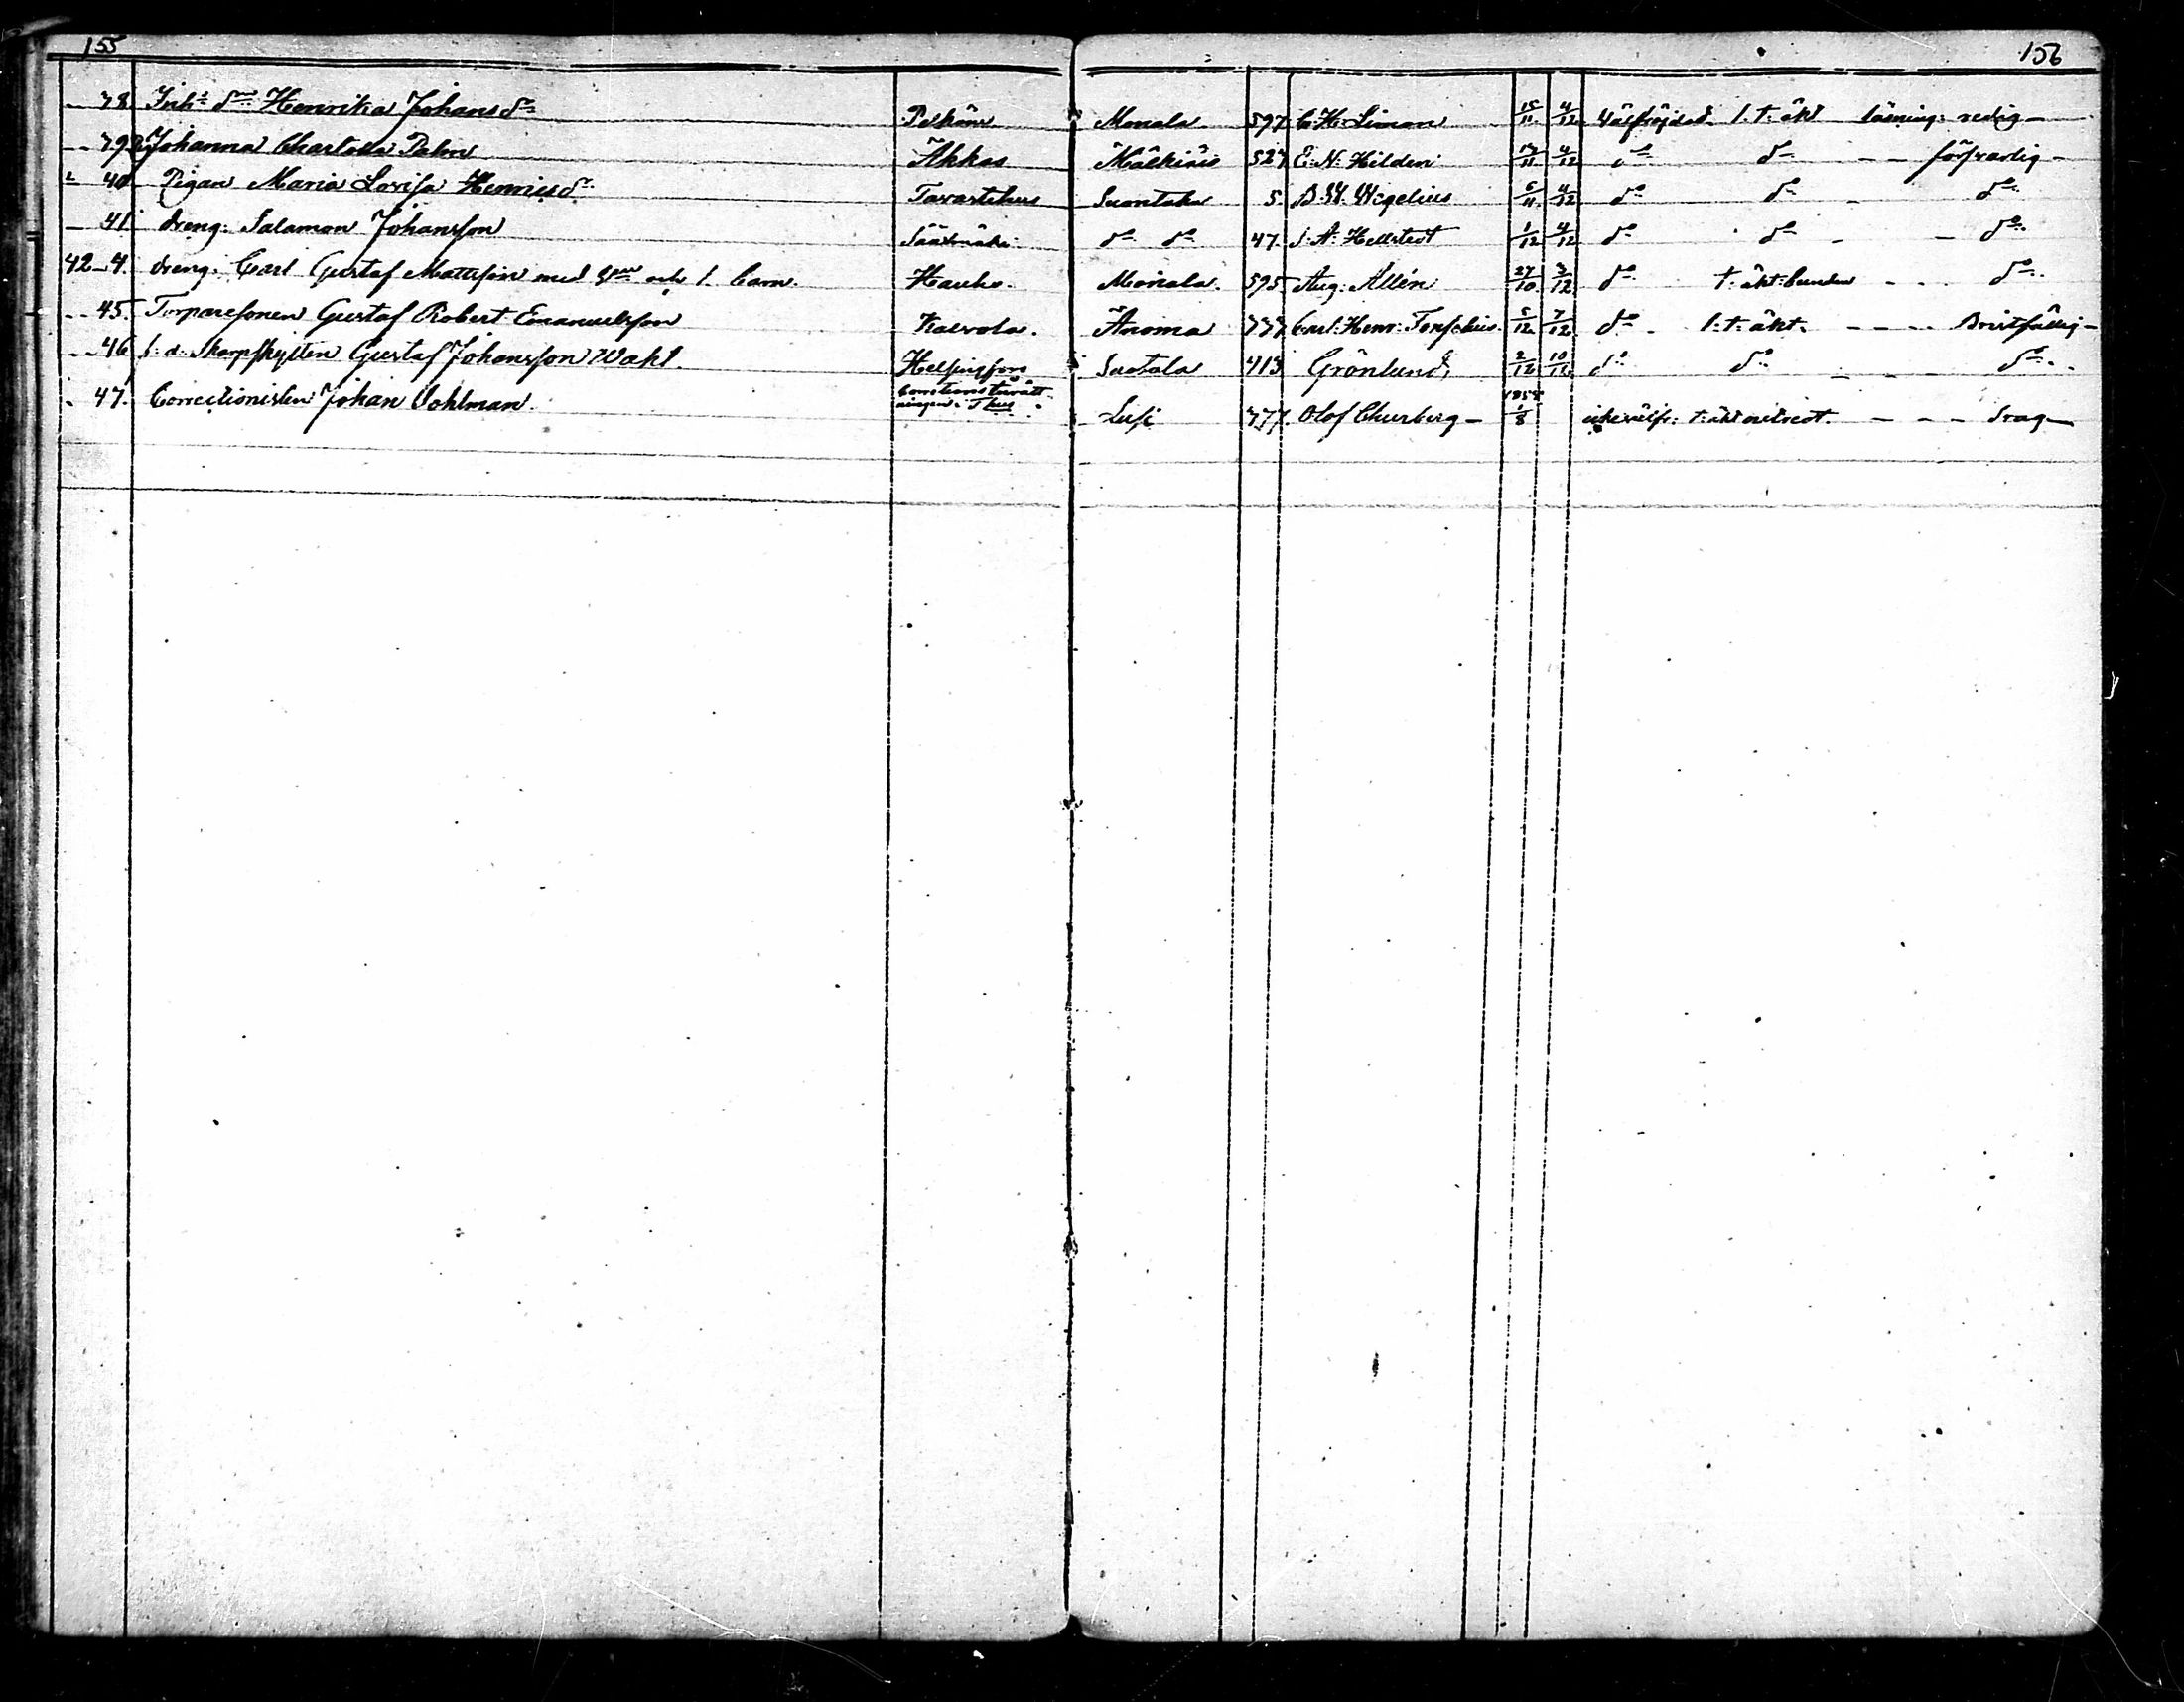 155
156
38. Inh: d:n Henrika Johansd:r Pelkäne Monala 597 C. H. Limon 15/11 4/12 Välfräjdad l. t. äkt läsning: redig —
39. Johanna Charlotta Palm Akkas Mälkiäis 527 E. N. Hildén 4/12 d:o d:o — — försvarlig —
40 Pigan Maria Lovisa Henricsd:r Tavastehus Suontaka 5 B. W. Wegelius 6/11 4/12 d:o d:o — d:o
— 41 dreng: Salamon Johansson Sääxmäki d:o d:o 47. J. A. Hellstedt 1/12 4/12 d:o d:o — — d:o
42–4. dreng: Carl Gustaf Mattsson med h:u och 1. barn. Hauho. Monala. 595 Aug: Allén 27/10 3/12 d:o t: äkt: bunden - - - d:o
— 45. Torparesonen Gustaf Robert Emanuelsson Kalvola. Änoma 777 Carl: Henr: 5/12 7/12 d:o l: t: äkt. — — — Bristfällig —
— 46 f: d: Skarpskytten Gustaf Johansson Wahl. Helsingfors Suotala 413 Grönlund 2/12 10/12 d:o d:o — — d:o
47. Correctionisten Johan Vohlman. Corrections inrätt-
ningen i T:hus Lusi 777. Olof Churberg — 1858 1/8 icke välfr: t: äkt — — — Svag —